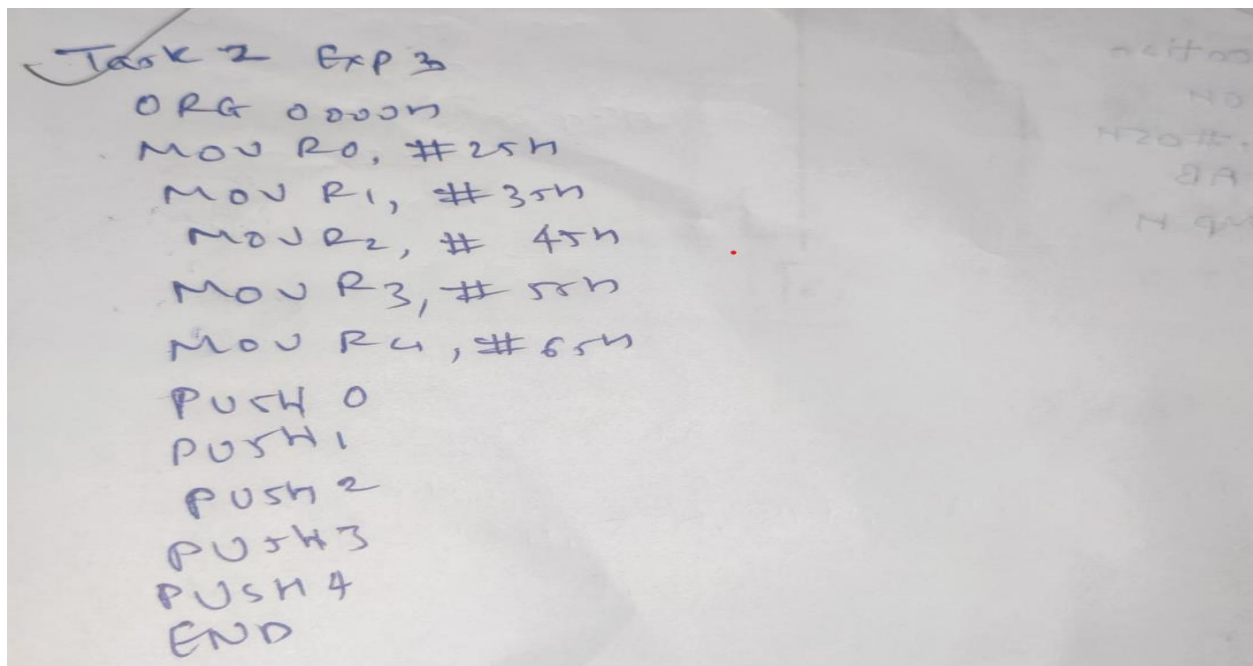 Task 2 Exp 3
ORG 0000H
MOV R0, #25H
MOV R1, #35H
MOV R2, # 45H
MOV R3, # 55H
MOV R4, #65H
PUSH 0
PUSH 1
PUSH 2
PUSH 3
PUSH 4
END